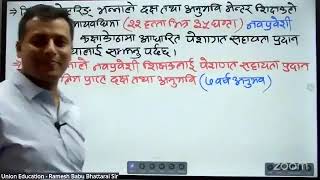 मेन्टरिङ भन्नाले दक्ष तथा अनुभवी मेन्टर शिक्षकले
(२२ हप्ता भित्र २५ घण्टा) नवप्रवेशी
कक्षाकोठामा आधारित पेशागत सहायता प्रदान
लाई सम्झनु पर्दछ।
ले नवप्रवेशी शिक्षकलाई पेशागत सहायता प्रदान
प्राप्त दक्ष तथा अनुभवी (७ वर्ष अनुभव)
Union Education - Ramesh Babu Bhattarai Sir
zoom